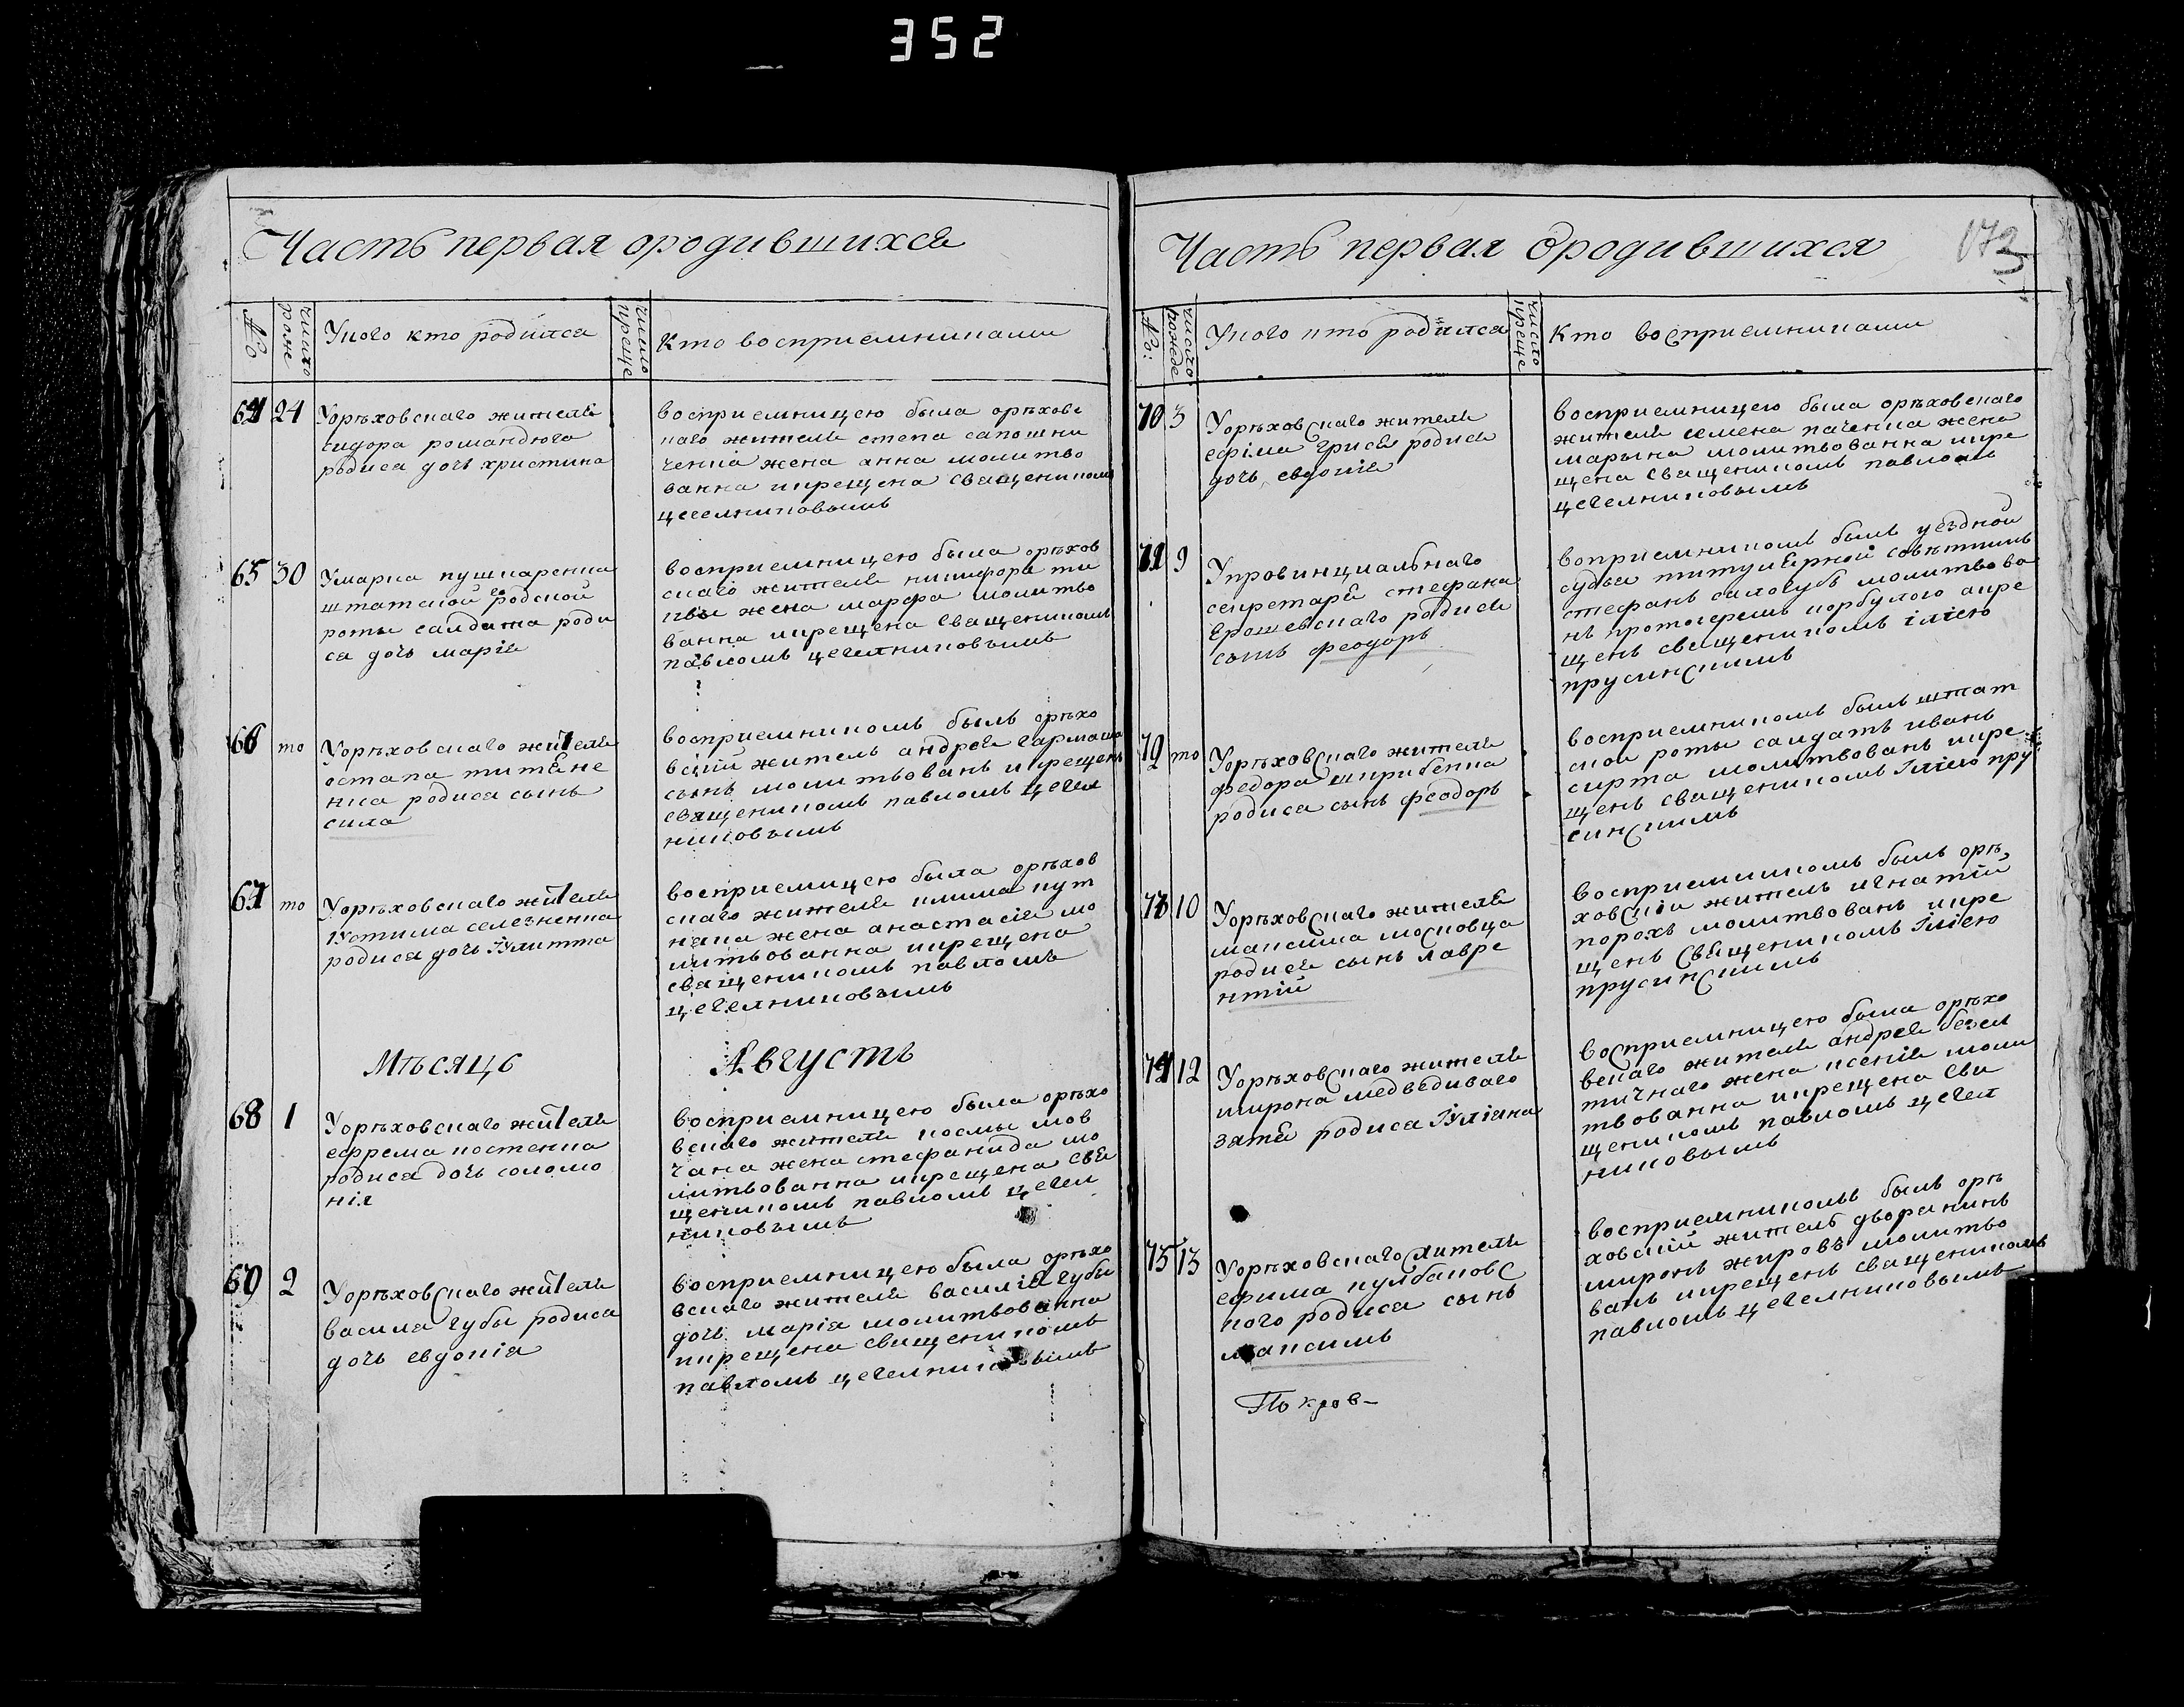 352
Часть первая ородившихся
№
число рожде
Укого кто родился
число креще
Кто восприемниками
64 24 Уорѣховскаго жителя
сидора романдюга
родися дочь христина
восприемницею была орѣховс
каго жителя степа сапошни
ченка жена анна молитво
ванна икрещена священиком
цегелниковымъ
65 30 Умарка пушкаренка
штатской городской
роты салдата роди
ся дочь марія
восприемницею была орѣхов
скаго жителя никифора ти
квы жена марфа молитво
ванна икрещена священикомъ
павломъ цегелниковымъ
66 то Уорѣховскаго жителя
остапа титяне
нка родися сынъ
сила
восприемникомъ былъ орѣхо
вскій житель андрей гармаша
сынъ молитвованъ икрещенъ
священикомъ павломъ цегел
никовымъ
67 то Уорѣховскаго жителя
Іустима селезненка
родися дочь Іулитта
восприемицею была орѣхов
скаго жителя клима кут
няка жена анастасія мо
литвованна икрещена
священикомъ павломъ
цегелниковымъ
Мѣсяцъ Августъ
68 1 Уорѣховскаго жителя
ефрема костенка
родися дочь соломо
нія
восприемницею была орѣхо
вскаго жителя космы мов
чана жена стефанида мо
литвованна икрещена свя
щеникомъ павломъ цегел
никовымъ
69 2 Уорѣховскаго жителя
василя губы родися
дочь евдокія
восприемницею была орѣхо
вскаго жителя василія губы
дочь марія молитвованна
икрещена священикомъ
павломъ цегелниковымъ
Часть первая ородившихся
173
№:
число рожде
Укого кто родился
число креще
Кто восприемниками
70 3 Уорѣховскаго жителя
ефіма грися родися
дочь евдокія
восприемницею была орѣховскаго
жителя семена паченка жена
марына молитвованна икре
щена священикомъ павломъ
цегелниковымъ
71 9 Упровинциальнаго
секретаря стефана
Ерошевскаго родися
сынъ феодоръ
воприемникомъ былъ уездной
судьи титулярной совѣтникъ
стефанъ салогубъ молитвова
нъ протоереемъ корбулого икре
щенъ священикомъ іліею
прусинскимъ
72 то Уорѣховскаго жителя
федора шкрибенка
родися сынъ феодоръ
восприемникомъ былъ штат
ской роты салдатъ иванъ
сирта молитвованъ икре
щенъ священикомъ Іліею пру
синскимъ
73 10 Уорѣховскаго жителя
максима московца
родися сынъ лавре
нтій
восприемникомъ былъ орѣ
ховскій житель игнатій
порохъ молитвованъ икре
щенъ священикомъ Іліею
прусинскимъ
74 12 Уорѣховскаго жителя
мирона медведиваго
зятя родися Іуліана
восприемницею была орѣхо
вскаго жителя андрея безел
тичнаго жена ксенія моли
твованна икрещена свя
щеникомъ павломъ цегел
никовымъ
75 13 Уорѣховскаго жителя
ефима кулбаковс
кого родися сынъ
максимъ
восприемникомъ былъ орѣ
ховскій житель дворянинъ
миронъ жировъ молитво
ванъ икрещенъ священикомъ
павломъ цегелниковымъ
Покров-